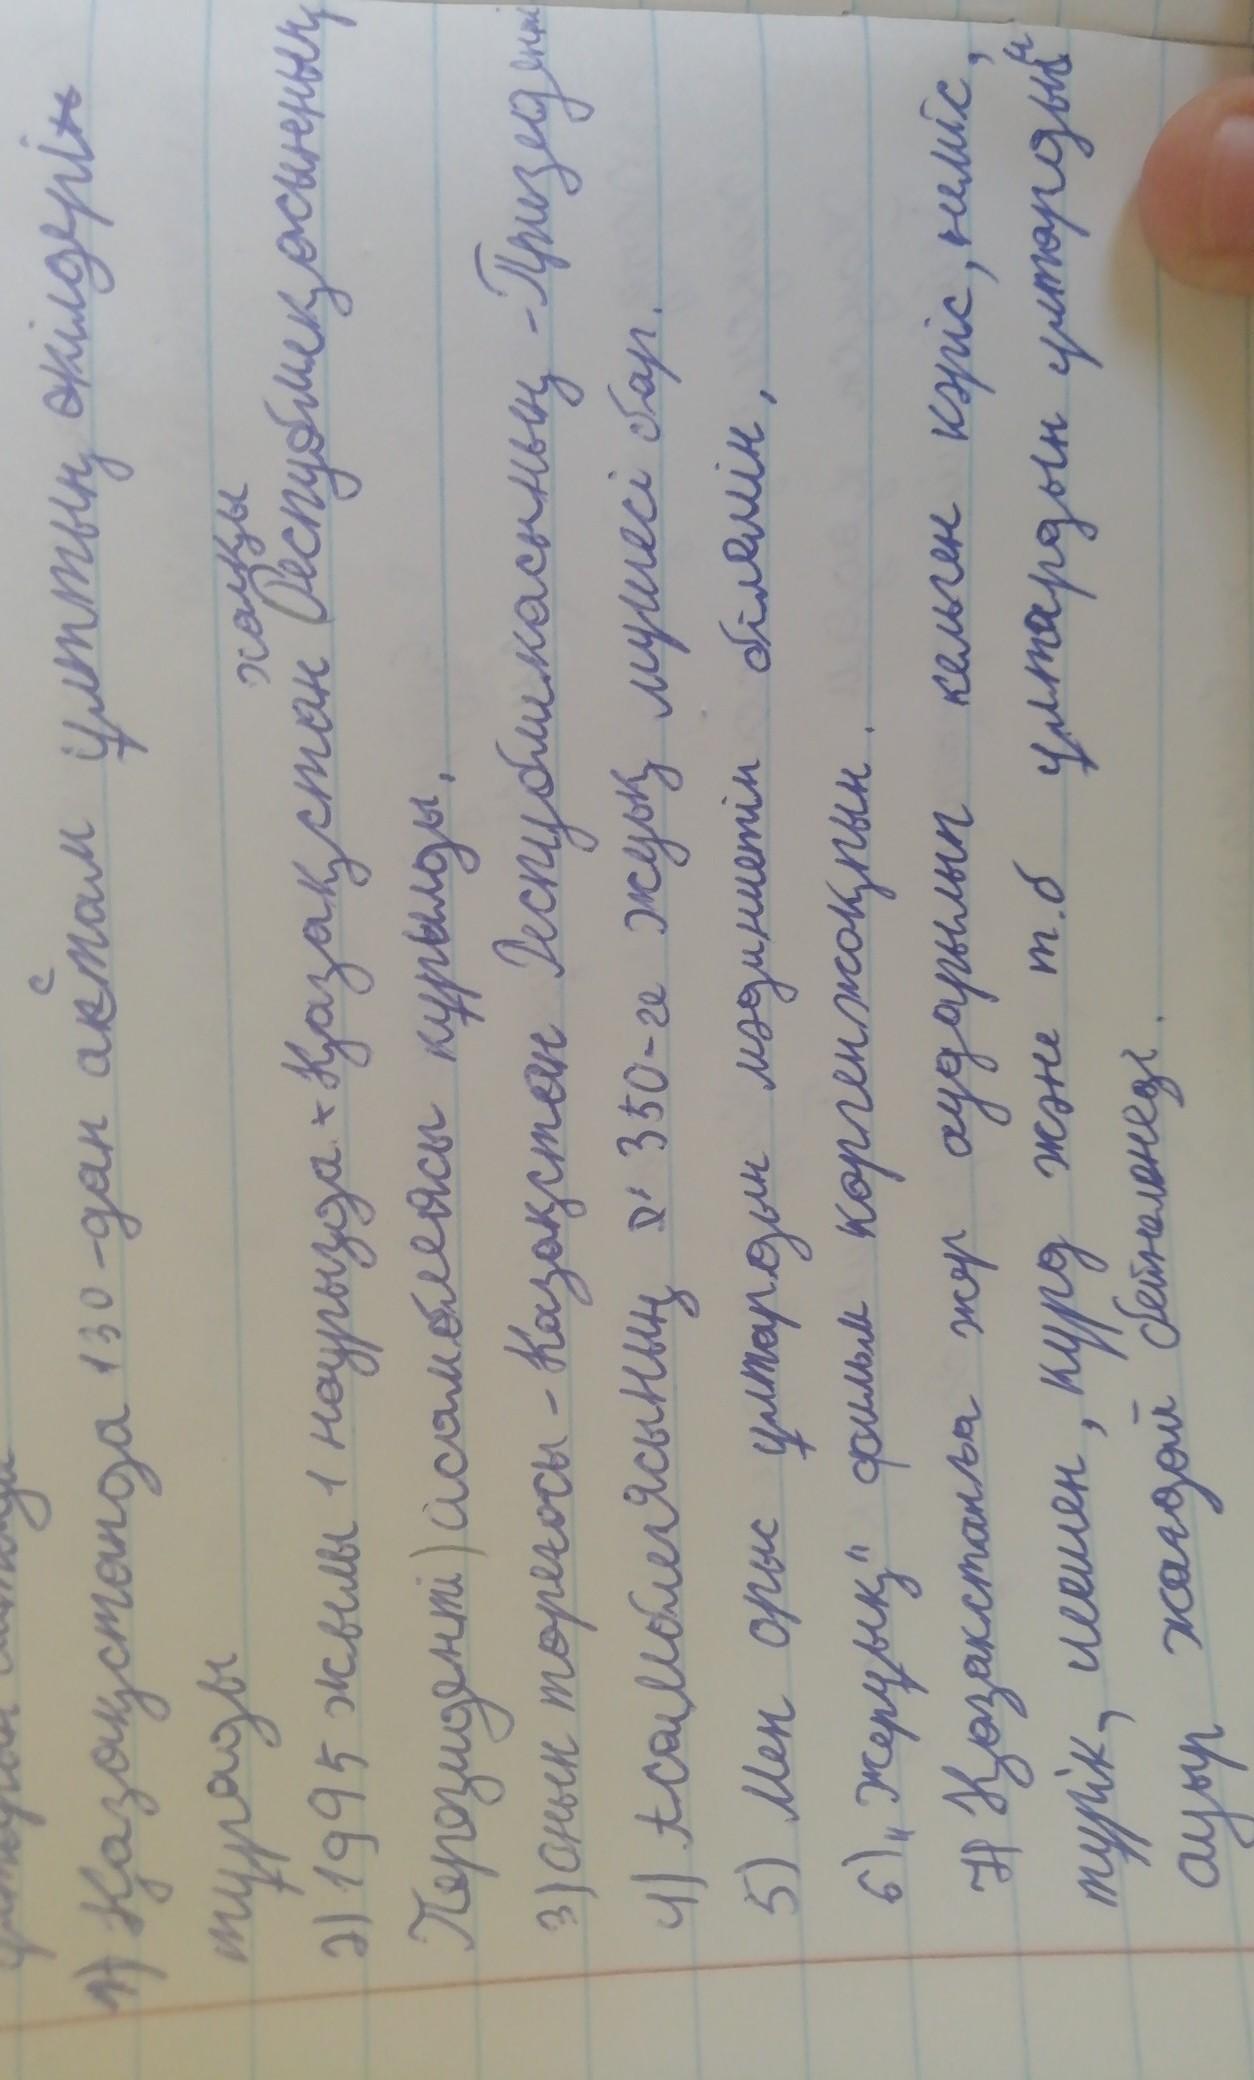 1) Қазақстанда 130-дан астам ұлттың өкілдері
тұрады
халқы
2) 1995 жылы 1 наурызда Қазақстан (Республиқасының
Перозиденті) асамблеясы құрылды.
3) онын торегасы - Казақстан Республикасынның - Призенденті
4) Ассамблеясының 350-ге жуық мүшесі бар.
5) Мен орыс ұлтардын мәдиниетін білемін,
6) "Жерұйық" фильм коргенжоқпын.
7) Қазакстанга жер аударылып келген кәріс, неміс,
түрік, шешен, курд және т.б ұлтардын ұлтордың
ауыр жағдай бейнеленеді.